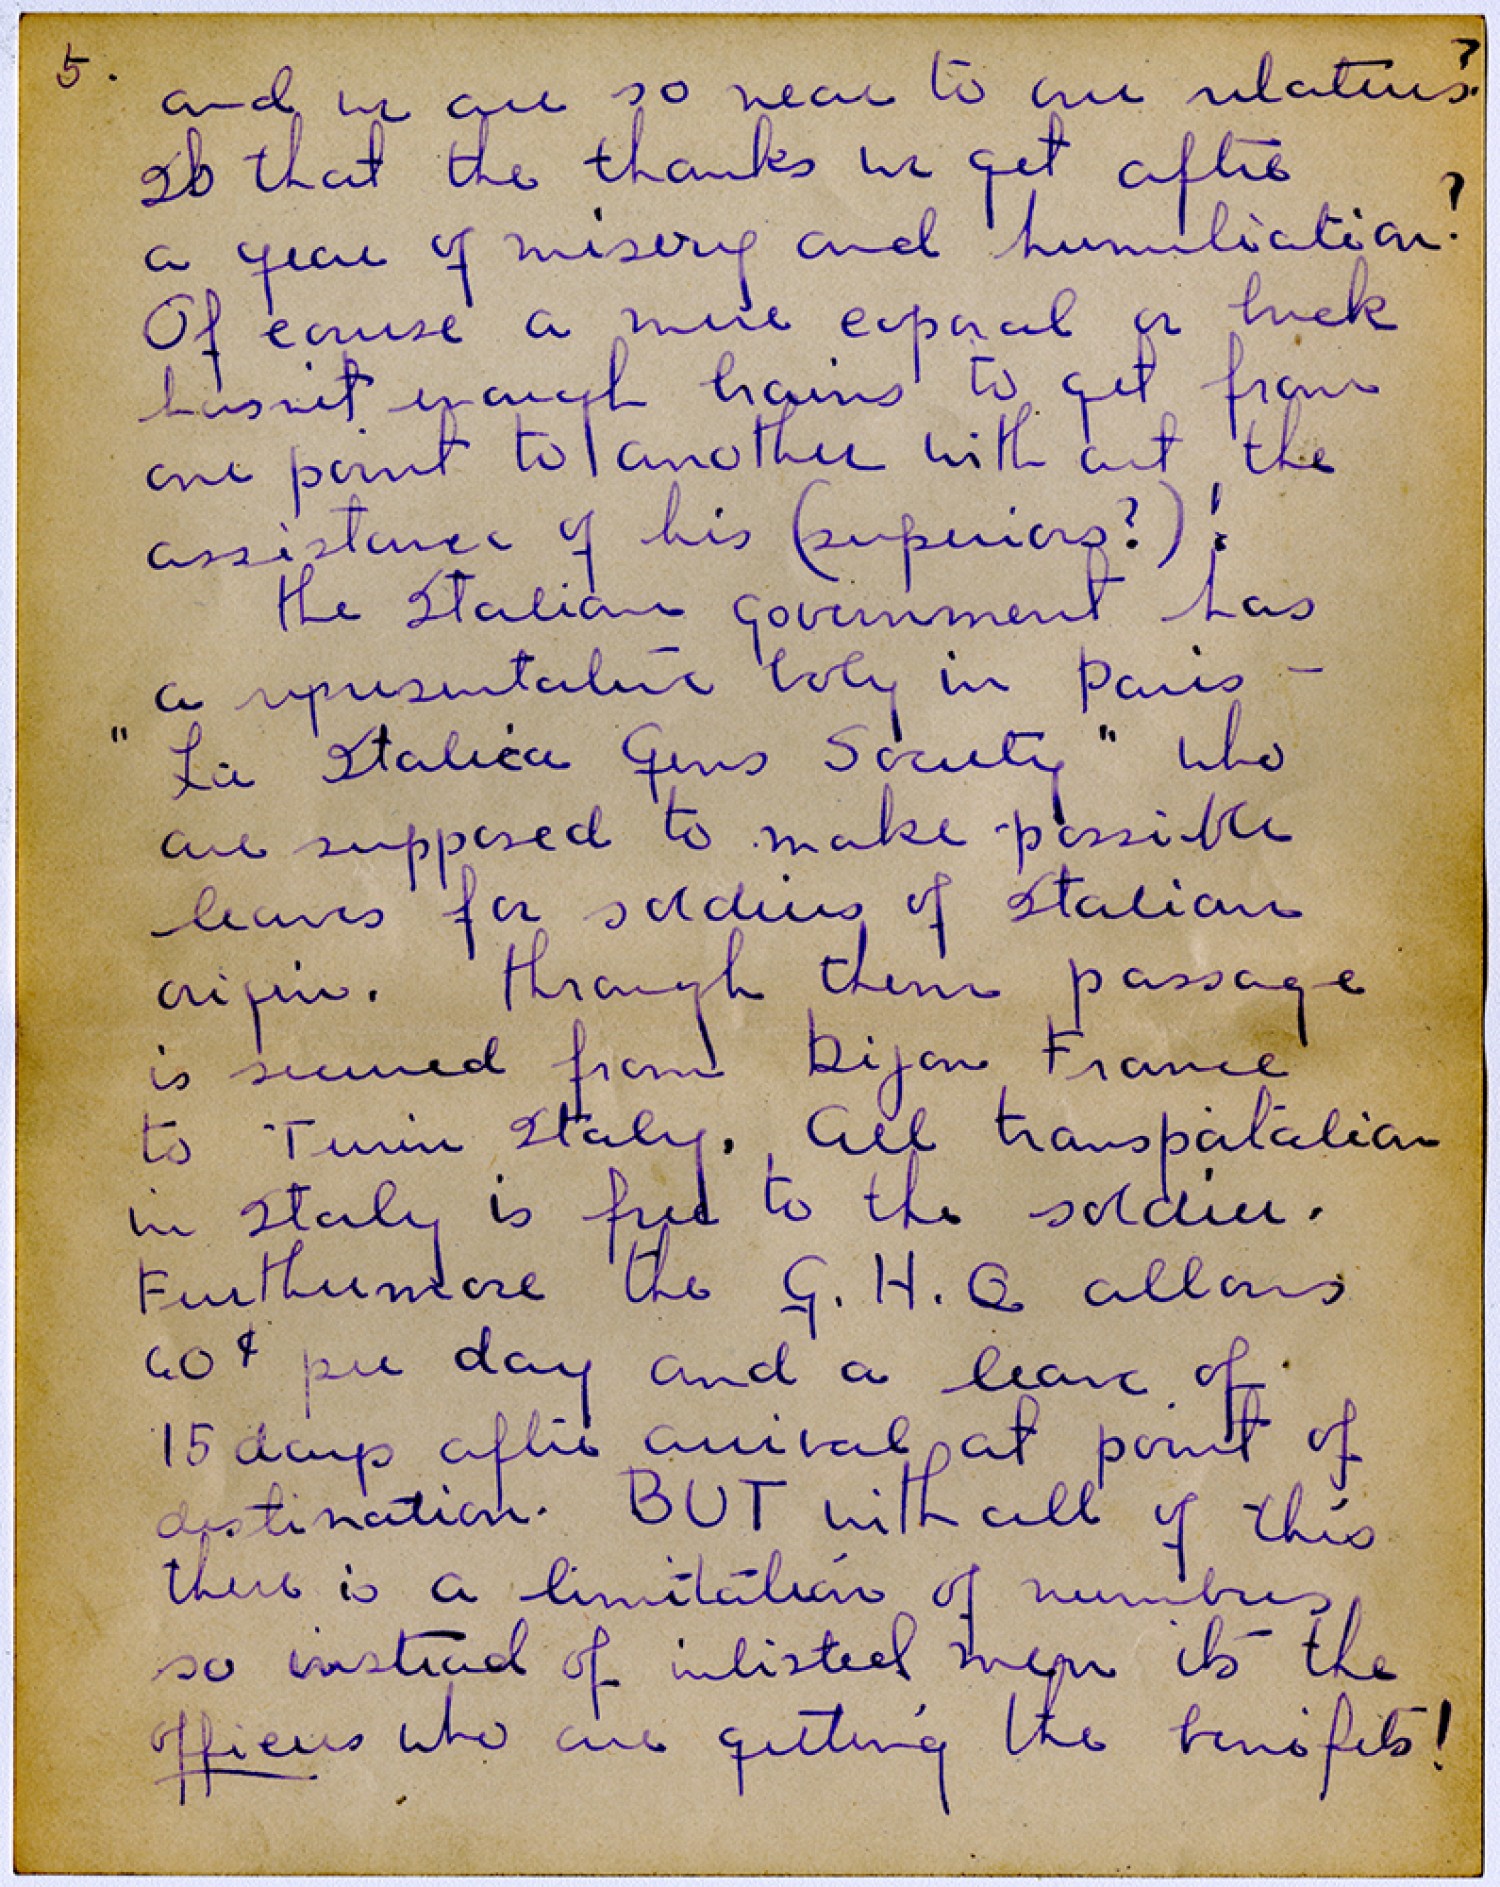 5.
and we are so near to our relatives?
Is that the thanks we get after
a year of misery and humiliation?
Of course a mere coporal or buck
hasn't enough brains to get from
one point to another with out the
assistance of his (superiors?)!
The Italian government has
a representative body in Paris –
"La Italica Gens Society" who
are supposed to make possible
leaves for soldiers of Italian
origin. Through them passage
is secured from Dijon France
to Turin Italy. All transpotation
in Italy is free to the soldier.
Furthermore the G.H.Q allows
60¢ per day and a leave of
15 days after arrival at point of
destination. BUT with all of this
there is a limitation of numbers
so instead of inlisted men its the
officers who are getting the benifits!